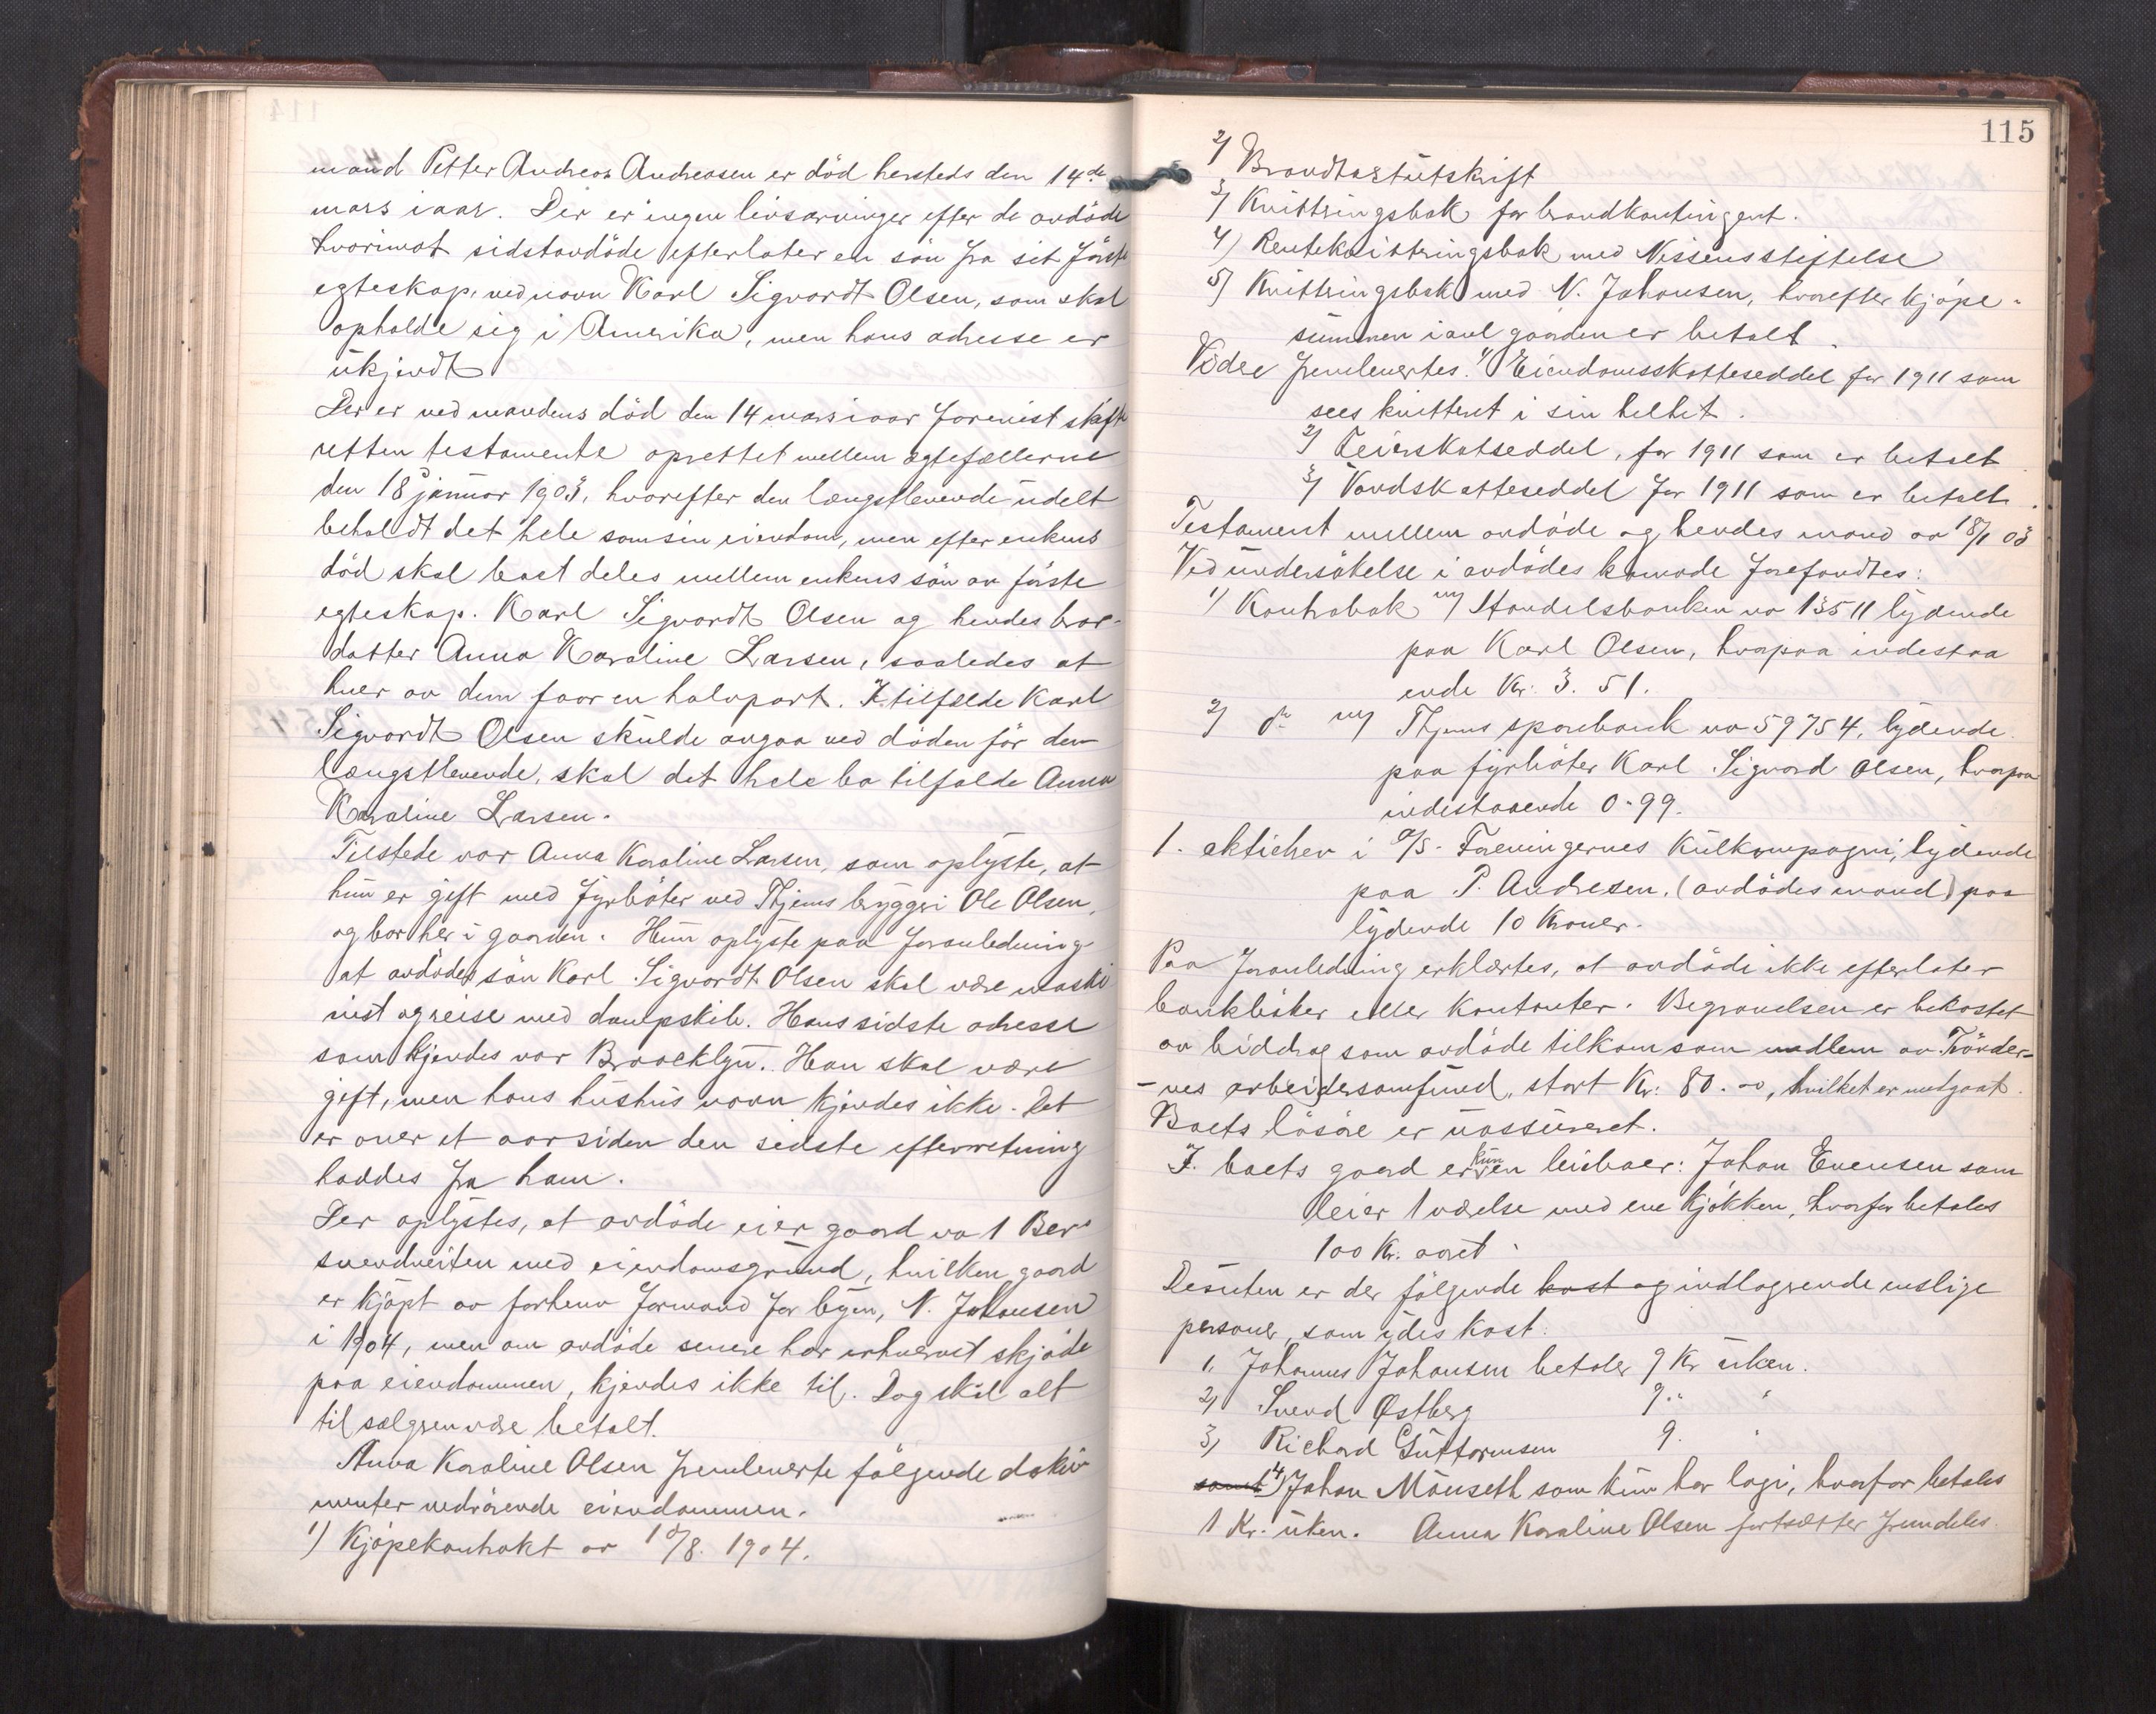 mand Petter Andreas Andreasen er död hersteds den 14de
mars iaar. Der er ingen livsarvinger efter de avdöde
hvorimot sidstavdöde efterlater en sön fra sit förste
egteskap, ved navn Karl Sigvardt Olsen, som skal
opholde sig i Amerika, men hans adresse er
ukjendt
Der er ved mandens död den 14 mars iaar forevist skifte
retten testamente oprettet mellem ægtefællerne
den 18 januar 1903, hvorefter den længstlevende udelt
beholdt det hele som sin eiendom, men efter enkens
död skal boet deles mellem enkens sön av förste
egteskap. Karl Sigvardt Olsen og hendes bror-
datter Anna Karoline Larsen, saaledes at
hver av dem faar en halvpart. I tilfælde Karl
Sigvardt Olsen skulde avgaa ved döden för den
længstlevende, skal det hele bo tilfalde Anna
Karoline Larsen.
Tilstede var Anna Karoline Larsen, som oplyste, at
hun er gift med fyrböter ved Thjems bryggeri Ole Olsen,
og bor her i gaarden. Hun oplyste paa foranledning
at avdödes sön Karl Sigvardt Olsen skal være maski
nist og reise med dampskib. Hans sidste adresse
som kjendes var Brocklyn. Han skal være
gift, men hans hustrus navn kjendes ikke. Det
er over et aar siden den sidste efterretning
haddes fra ham.
Der oplystes, at avdöde eier gaard no 1 Ber-
svendveiten med eiendomsgrund, hvilken gaard
er kjöpt av forhenv formand for byen, N. Johansen
i 1904, men om avdöde senere har erhvervet skjöde
paa eiendommen, kjendes ikke til. Dog skal alt
til sælgeren være betalt.
Anna Karoline Olsen fremleverte fölgende doku-
menter vedrörende eiendommen.
1) Kjöpekontrakt av 10/8. 1904.
115
2) Brandtaxtutskrift
3) Kvitteringsbok for brandkontingent.
4) Rentekvitteringsbok med Nissens stiftelse
5) Kvitteringsbok med N. Johansen, hvorefter kjöpe-
summen i avl gaarden er betalt.
Videre fremlevertes: 1) Eiendomsskatteseddel for 1911 som
sees kvittert i sin helhet.
2) Feierskatseddel, for 1911 som er betalt
3) Vandskatteseddel for 1911 som er betalt.
Testament mellem avdöde og hendes mand av 18/1 03
Ved undersökelse i avdödes komode forefandtes:
1) Kontrabok m/ Handelsbanken no 13511 lydende
paa Karl Olsen, hvorpaa indestaa
ende Kr. 3. 51.
2) do m/ Thjems sparebank no 59754, lydende
paa fyrböter Karl Sigvard Olsen, hvorpaa
indestaaende 0-99.
1. aktiebev i A/S. Foreningernes Kulkompagni, lydende
paa P. Andresen, (avdödes mand) paa
lydende 10 Kroner.
Paa foranledning erklærtes, at avdöde ikke efterlater
bankböker eller kontanter. Begravelsen er bekostet
av bidrag som avdöde tilkom som medlem av Trönder-
-nes arbeidersamfund, stort Kr: 80.00, hvilket er medgaat.
Boets lösöre er uassureret.
I boets gaard er kun en leieboer: Johan Evensen som
leier 1 værelse med eve kjökken, hvorfor betales
100 Kr. aaret.
Desuten er der fölgende kost og indlogerende enslige
personer, som ydes kost:
1, Johannes Johansen betaler 9 Kr uken.
2, Svend Østberg 9 " "
3, Richard Guttormsen 9. "
samt 4) Johan Mönseth som kun har logi, hvorfor betales
1 Kr. uken. Anna Karoline Olsen fortsætter fremdeles